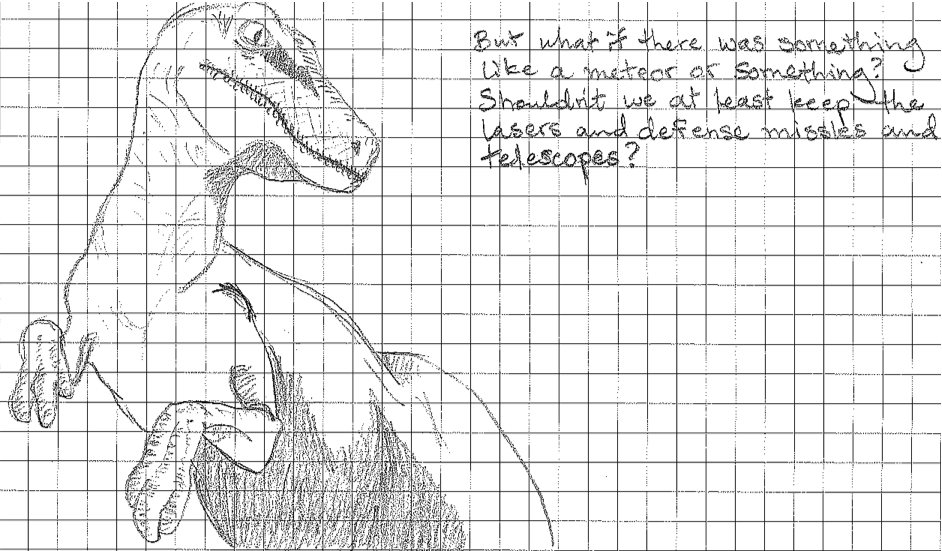 But what if there was something
like a meteor or something?
Shouldn't we at least keep the
lasers and defense missles and
telescopes?